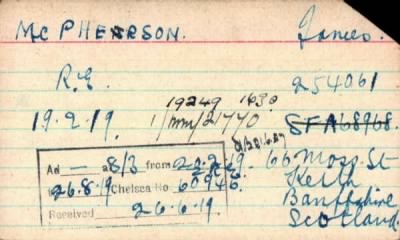 McPHEARSON. James.
R.E. 254061
19249 1630
19.2.19. 1/mm/21770 SFA68968.
Ad — a 8/3 from 22.2.19. 66 Moss. St
26.8.19 Chelsea No 60946. Keith
Received 26.6.19. Banffshire
Scotland.